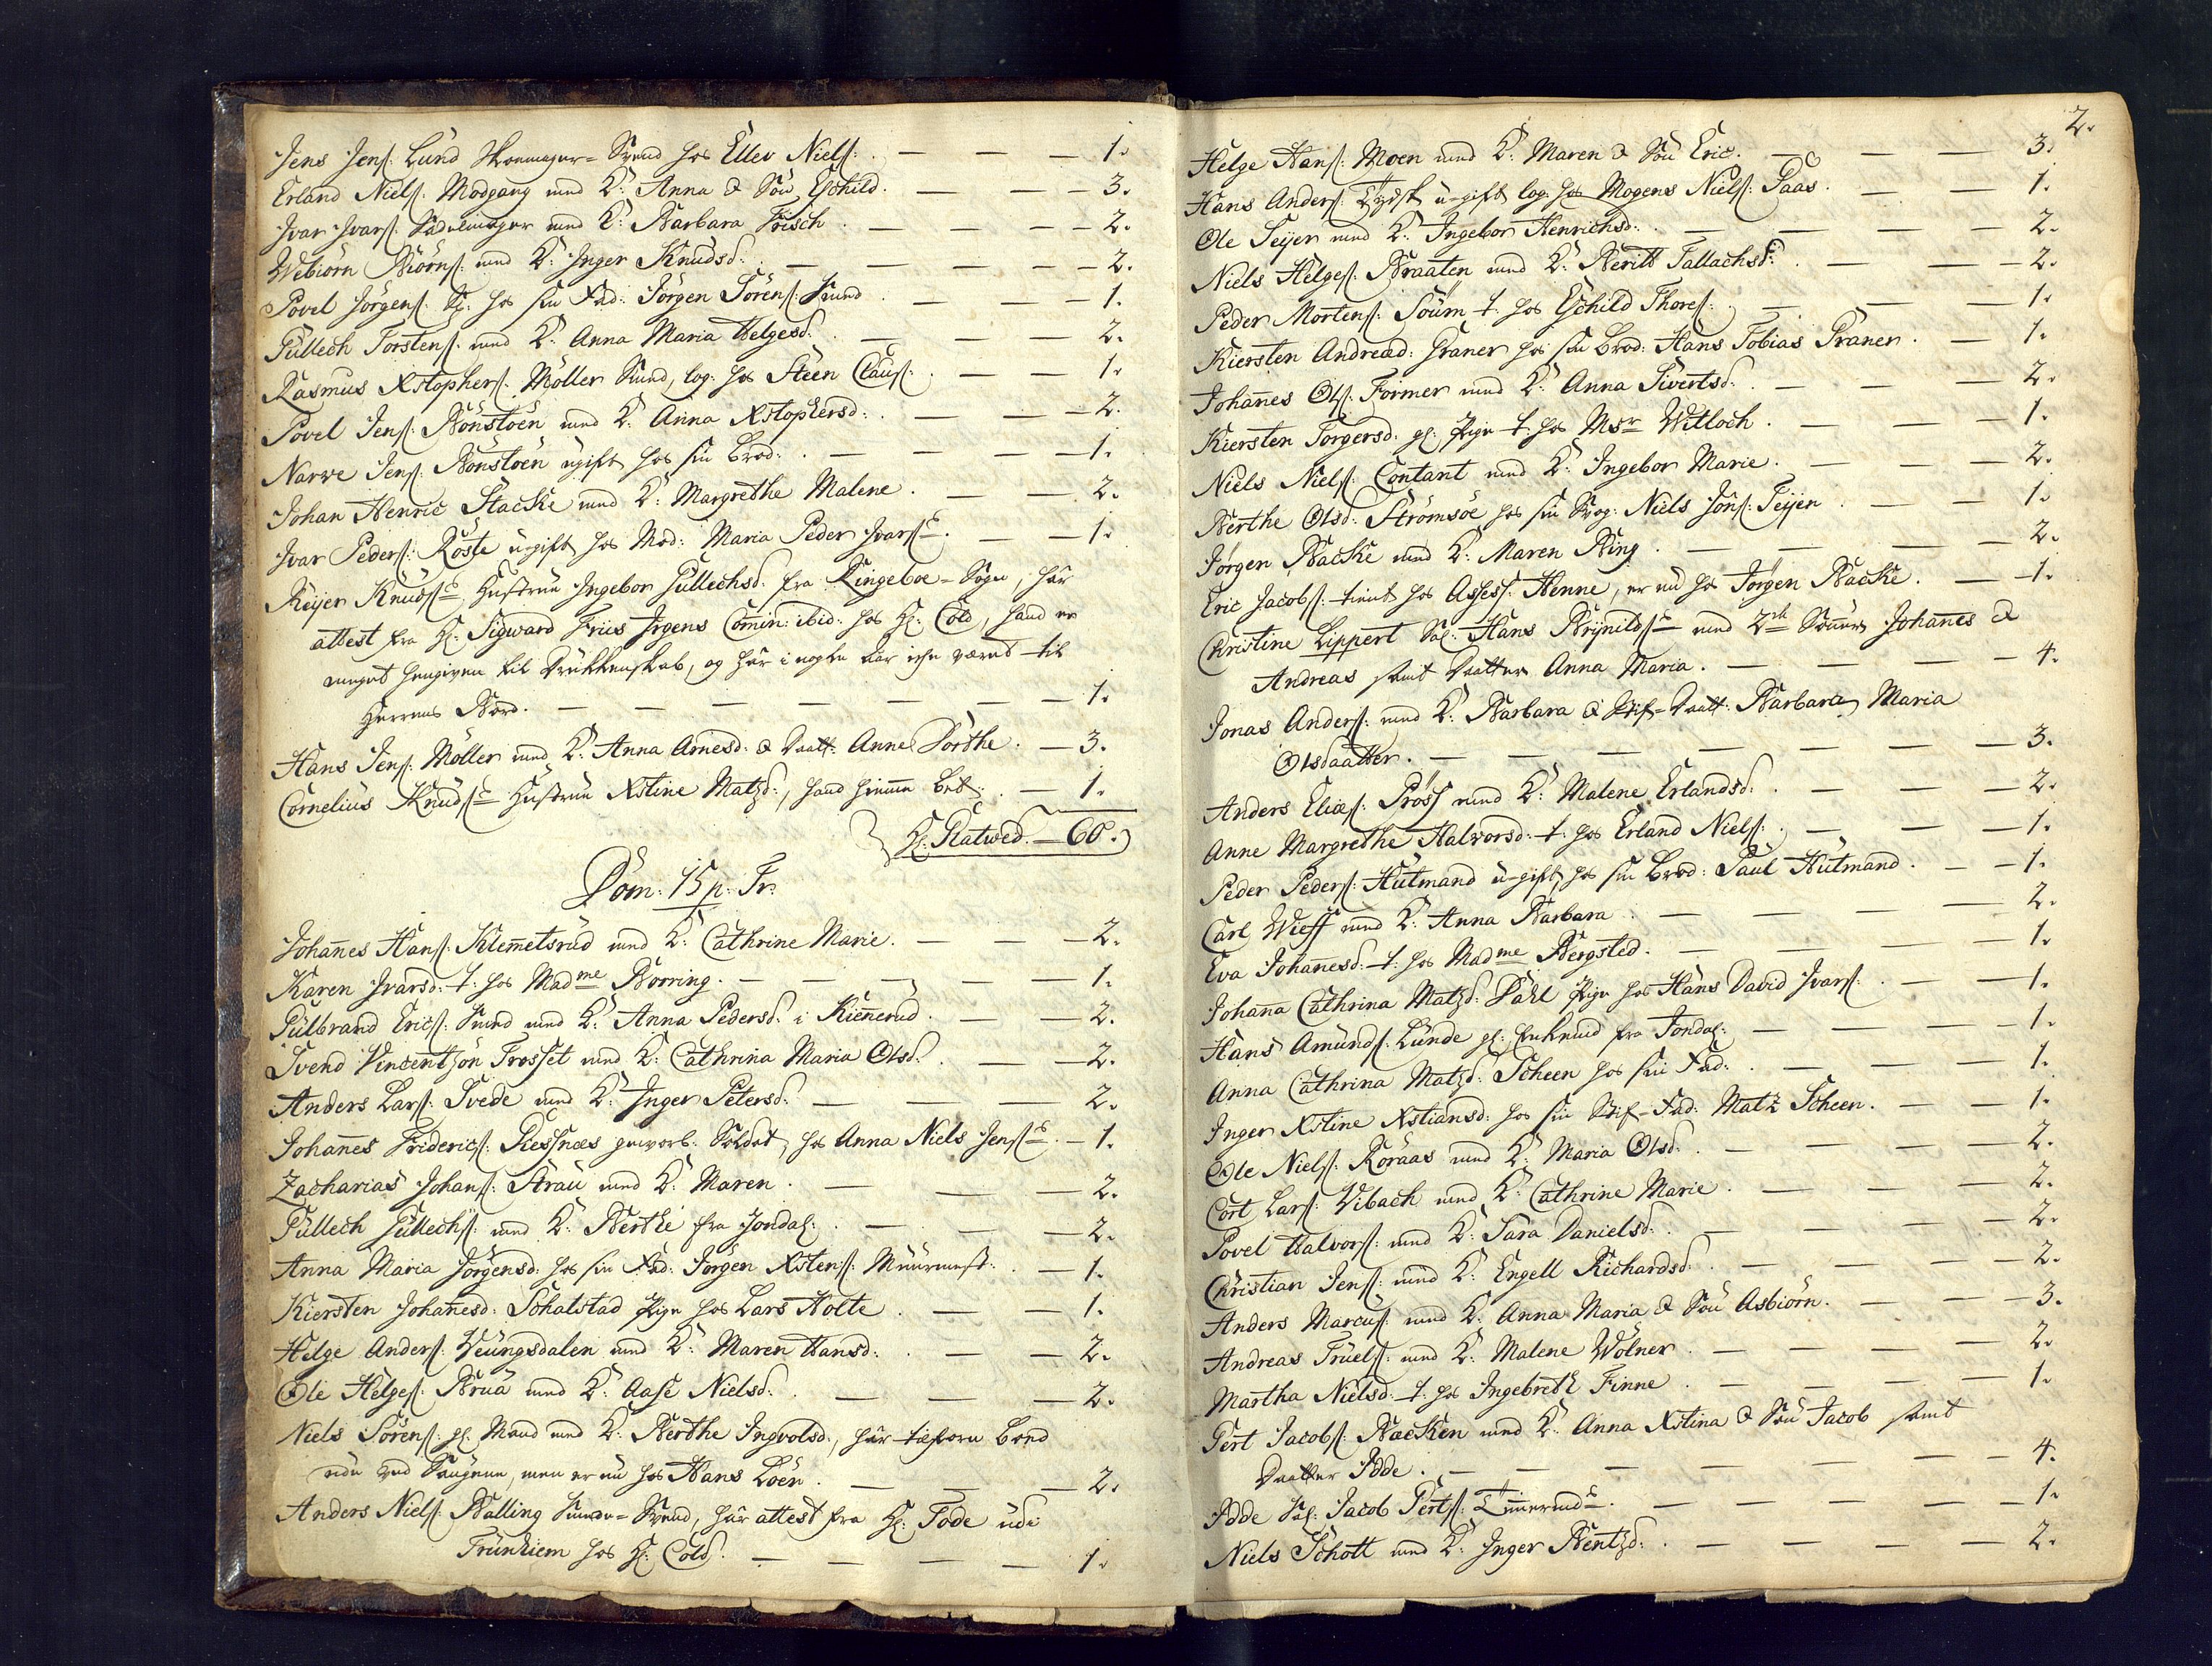 Jens Jens: Lund Skoemager-Svend hos Ellev Niels: . — — — 1.
Erland Niels: Modgang med K: Anna & Søn Eschild. — — — 3.
Jvar Jvars: Sadelmager med K: Barbara Frisch . — — — 2.
Webiörn Biörns: med K: Inger Knudsd: . — — — 2.
Povel Jörgens: hos sin Fad: Jörgen Sörens: Smed . — — 1.
Gullech Torstens: med K: Anna Maria Helgesd: . — — 2.
Rasmus Xstophers: Möller Svend, log: hos Steen Claus: . — — 1.
Povel Jens: Bönstöen med K: Anna Xstophersd: . — — 2.
Narve Jens: Bönstöen ugift hos sin Brod: . — — — 1.
Johan Henric Stacke med K: Margrethe Malene . — — 2.
Jvar Peders: Röste ugift hos Mod: Maria Peder Jvars: . — — 1.
Reijer Knuds: Hustrue Ingebor Gullechsd: fra Ringeboe-Sogn, har
attest fra H: Sigward Friis Jrgens Comin: ibid: hos H: Cold, hand er
meget hengiven til Drukkenskab, og har i nogle Aar icke været til
Herrens Bord. — — — — — — — 1.
Hans Jens: Möller med K: Anna Arnesd: & Daatt: Anne Dorthe . — 3.
Cornelius Knuds: Hustrue Xstine Matzd:, hand hiemme . — 1.
H: Platwed. — 60.
Dom: 15 p: Tr:
Johannes Hans: Klemmetsrud med K: Cathrine Marie. — — — 2.
Karen Jvarsd: t: hos Madme Borring. — — — — 1.
Gulbrand Erics: Smed med K: Anna Pedersd: i Kiennerud. — — 2.
Svend Vincentzön Trosset med K: Cathrina Maria Olsd: . — — 2.
Anders Lars: Svede med K: Inger Petersd: — — — 2.
Johannes Friderics: Plessnæs gevorb: Soldat, hos Anna Niels Jens: . — 1.
Zacharias Johans: Strau med K: Maren . — — — 2.
Gullech Gullechs: med K: Berthe fra Jondal: . — — — 2.
Anna Maria Jörgensd: hos sin Fad: Jörgen Xstens: Muurmest: . — 1.
Kiersten Johannesd: Schatstad Pige hos Lars Holte . — — 1.
Helge Anders: Veungsdalen med K: Maren Hansd: . — — 2.
Ole Helges: Brua med K: Aase Nielsd: . — — — 2.
Niels Sörens: gl: Mand med K: Berthe Ingvolsd:, har tilforn boed
ved Saugene, men er nu hos Hans Loen . — — — 2.
Anders Niels: Balling Svend, har attest fra H: Tode udi
Trunhiem hos H: Cold. — — — — 1.
2.
Helge Hans: Moen med K: Maren & Søn Eric. — — — 3.
Hans Anders: Tydsk ugift log: hos Mogens Niels: Paas . — — 1.
Ole Seijer med K: Ingebor Henrichsd: . — — — 2.
Niels Helges: Braaten med K: Beritt Tallachsd: . — — 2.
Peder Mortens: Soum t: hos Eschild Thores: . — — — 1.
Kiersten Andread: Graner hos sin Brod: Hans Tobias Graner . — 1.
Johannes Ols: Former med K: Anna Sivertsd: . — — — 2.
Kiersten Torgersd: gl: Pige t: hos Msr Witloch . — — — 1.
Niels Niels: Contant med K: Ingebor Marie . — — — 2.
Berthe Olsd: Strömsöe hos sin Svog: Niels Jöns: Teijen . — — 1.
Jörgen Backe med K: Maren Bing . — — — — 2.
Eric Jacobs: tient hos Assess: Henne, er nu hos Jörgen Backe . — 1.
Christine Lippert Sal: Hans Brijnilds: med 2de Sönner Johannes &
Andreas samt Daatter Anna Maria . — — — — 4.
Jonas Anders: med K: Barbara & Stif-Daatt: Barbara Maria
Olsdaatter . — — — — — — — 3.
Anders Elias: Pröss med K: Malene Erlandsd: . — — — 2.
Anne Margrethe Halvorsd: t: hos Erland Niels: . — — — 1.
Peder Peders: Hutmand ugift, hos sin Brod: Paul Hutmand . — — 1.
Carl Wieff med K: Anna Barbara . — — — — 2.
Eva Johannesd: t: hos Madme Bergsted . — — — — 1.
Johanna Cathrina Matzd: Dahl Pige hos Hans David Jvars: . — — 1.
Hans Amunds: Lunde gl: Enkemd fra Jondal: — — — 1.
Anna Cathrina Matzd: Scheen hos sin Fad: . — — — 1.
Inger Xstine Xstiansd: hos sin Stif-Fad: Matz Scheen . — — 1.
Ole Niels: Röraas med K: Maria Olsd: . — — — 2.
Cort Lars: Vibach med K: Cathrine Marie . — — — 2.
Povel Halvors: med K: Sara Danielsd: . — — — — 2.
Christian Jens: med K: Engell Richardsd: . — — — 2.
Anders Marcus: med K: Anna Maria & Søn Asbiörn . — — — 3.
Andreas Truels: med K: Malene Wölner . — — — — 2.
Martha Nielsd: t: hos Ingebreth Finne . — — — — 1.
Gert Jacobs: Backen med K: Anna Xstina & Søn Jacob samt
Daatter Adde . — — — — — — 4.
Adde Sal: Jacob Gerts: Timermds . — — — — 1.
Niels Schott med K: Inger Bentzd: . — — — — 2.